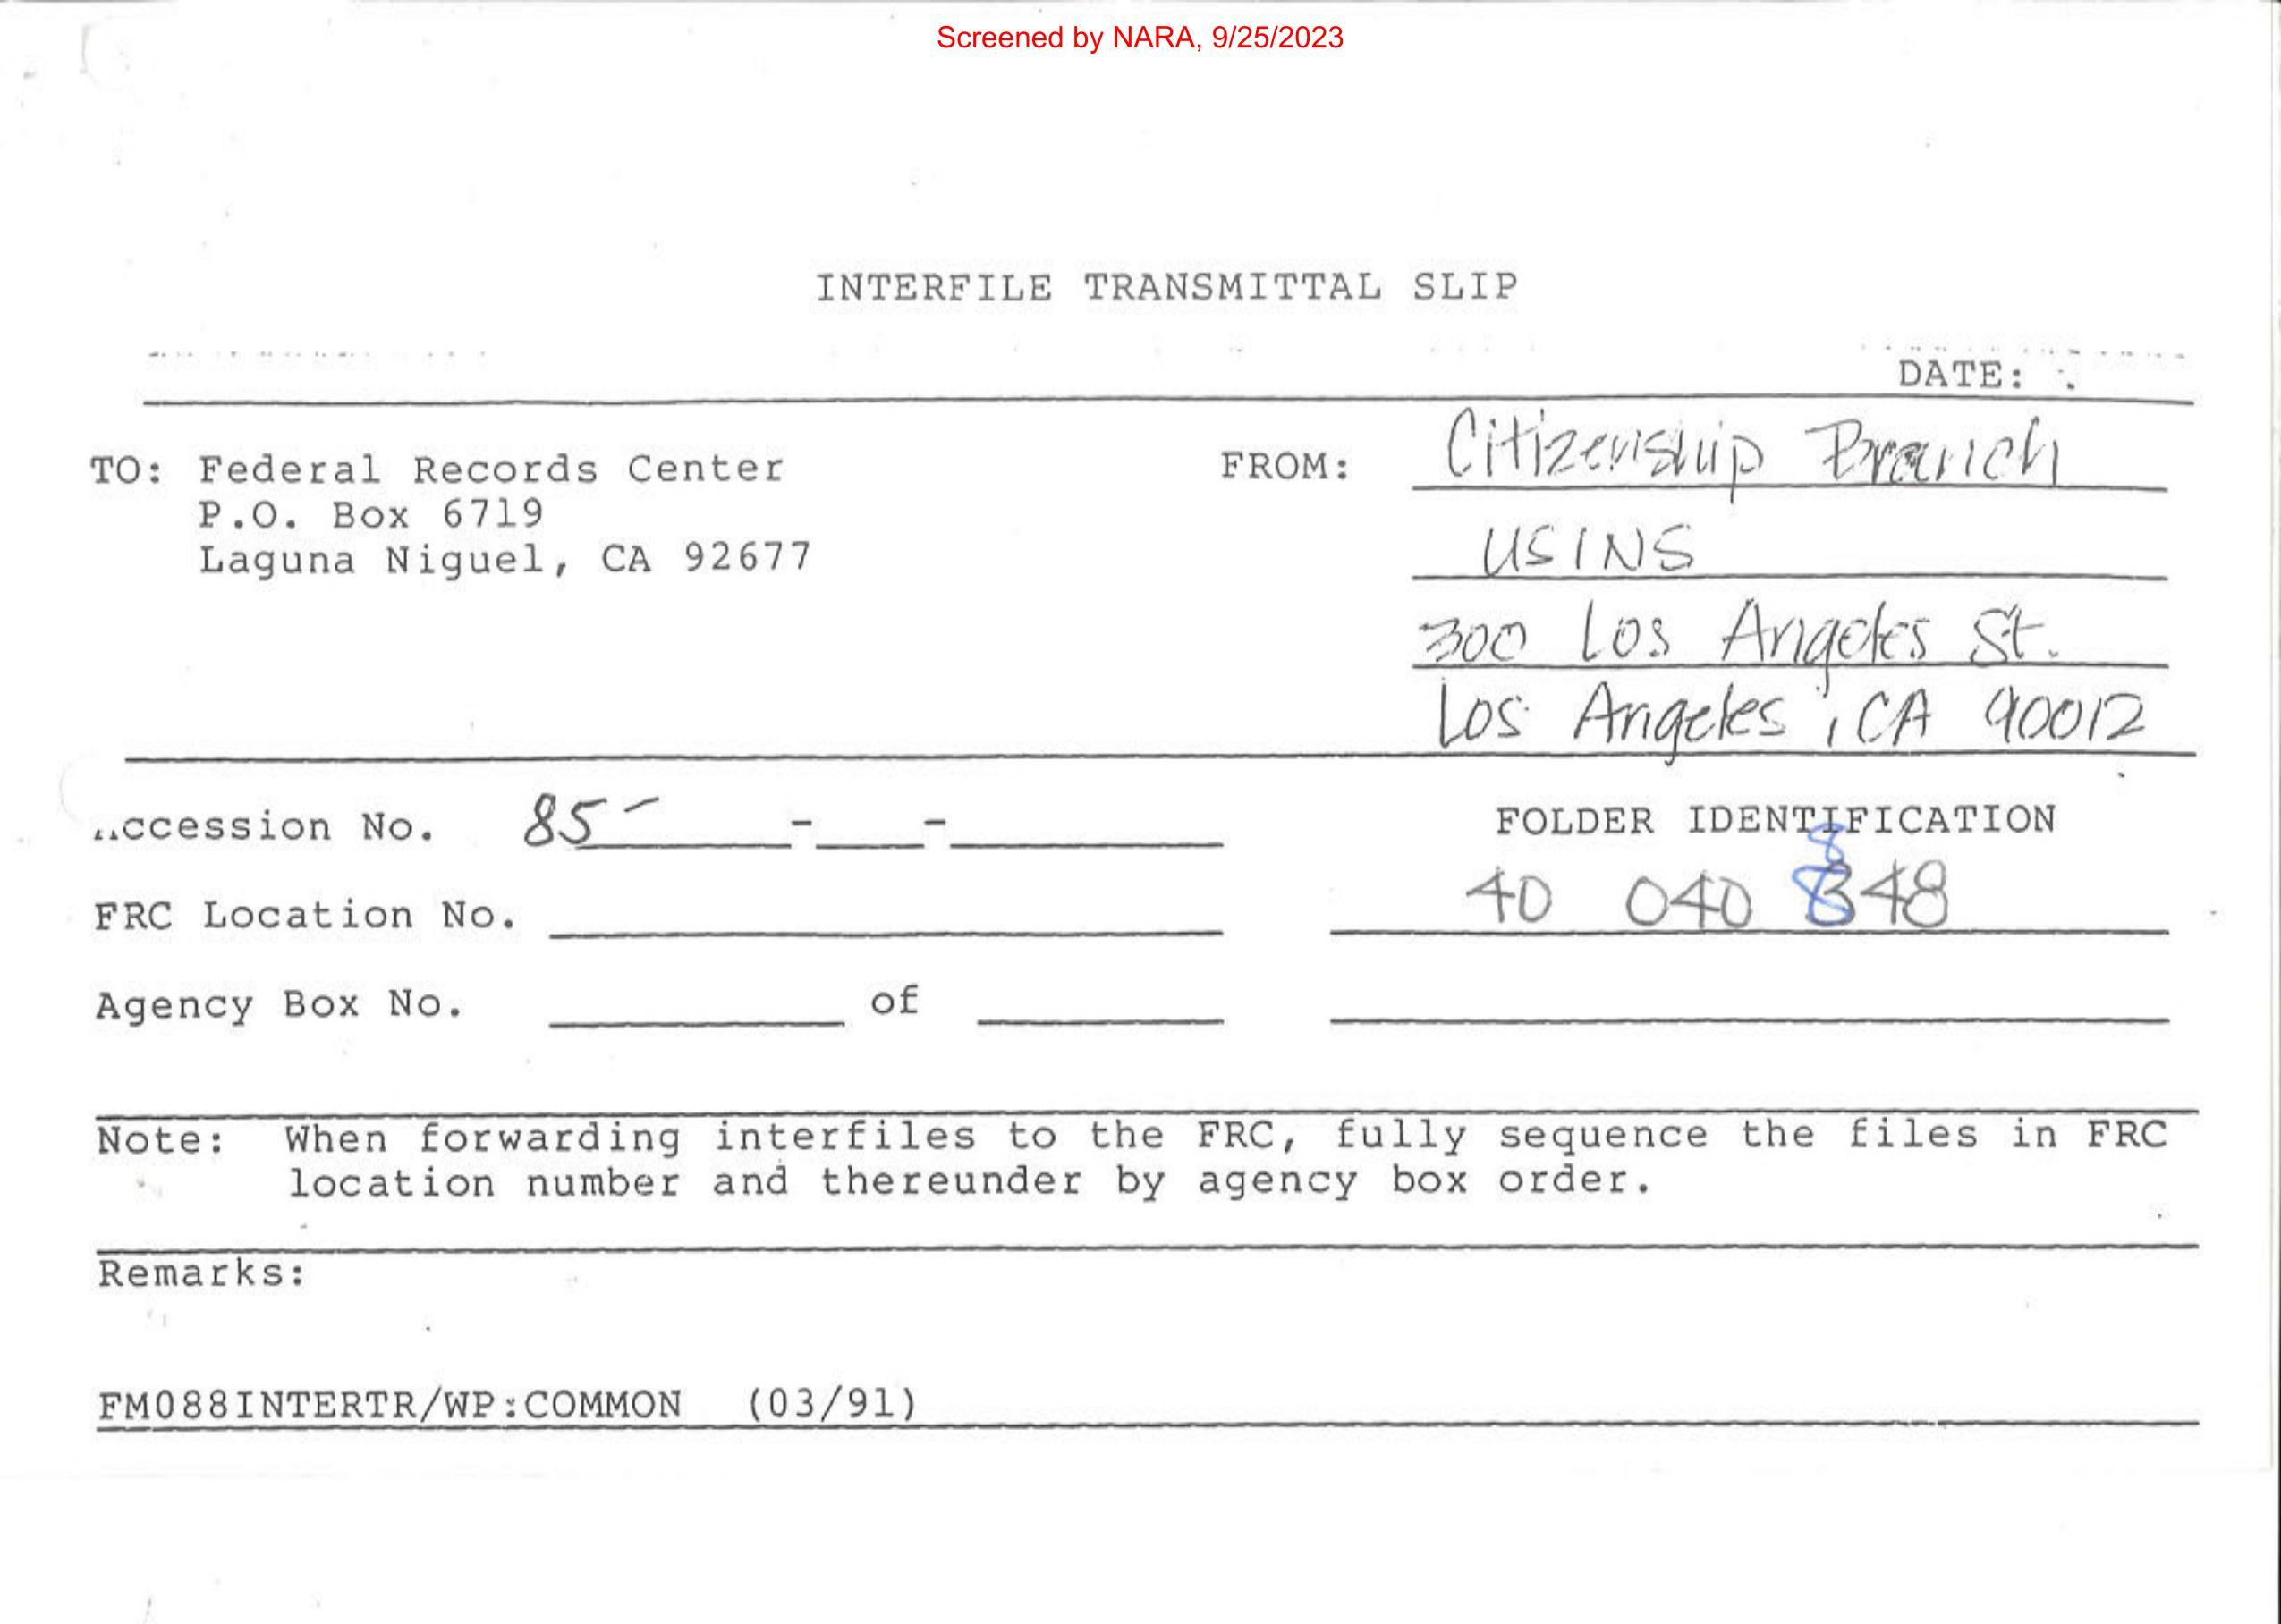 Screened by NARA, 9/25/2023
INTERFILE TRANSMITTAL SLIP
DATE:
TO: Federal Records Center
P.O. Box 6719
Laguna Niguel, CA 92677
FROM: Citizenship Branch
USINS
300 Los Angeles St.
Los Angeles, CA 90012
ccession No. 85- - -
FOLDER IDENTIFICATION
8
40 040 848
FRC Location No.
Agency Box No. of
Note: When forwarding interfiles to the FRC, fully sequence the files in FRC
location number and thereunder by agency box order.
Remarks:
FM088INTERTR/WP:COMMON (03/91)